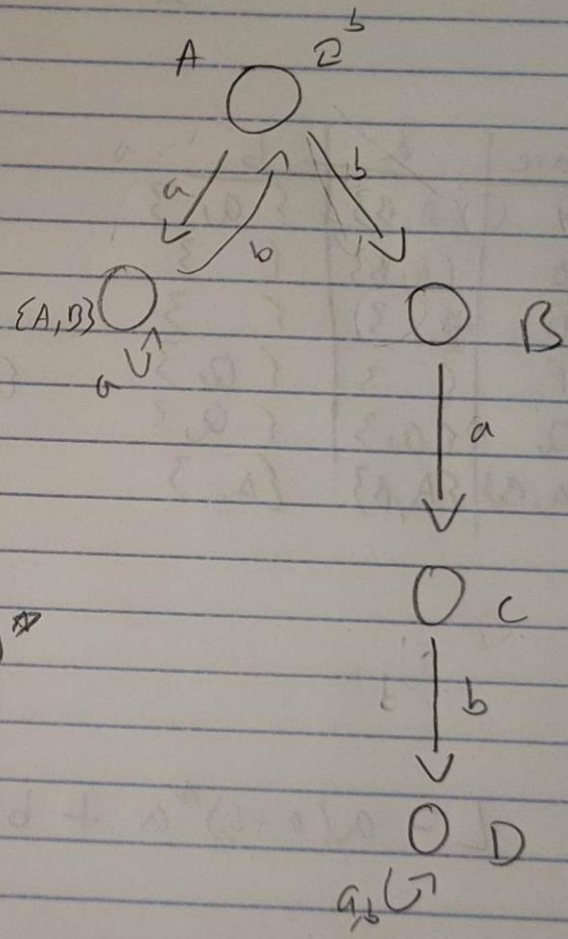 A b
a b
b
{A,B} B
a
a
C
b
D
a,b